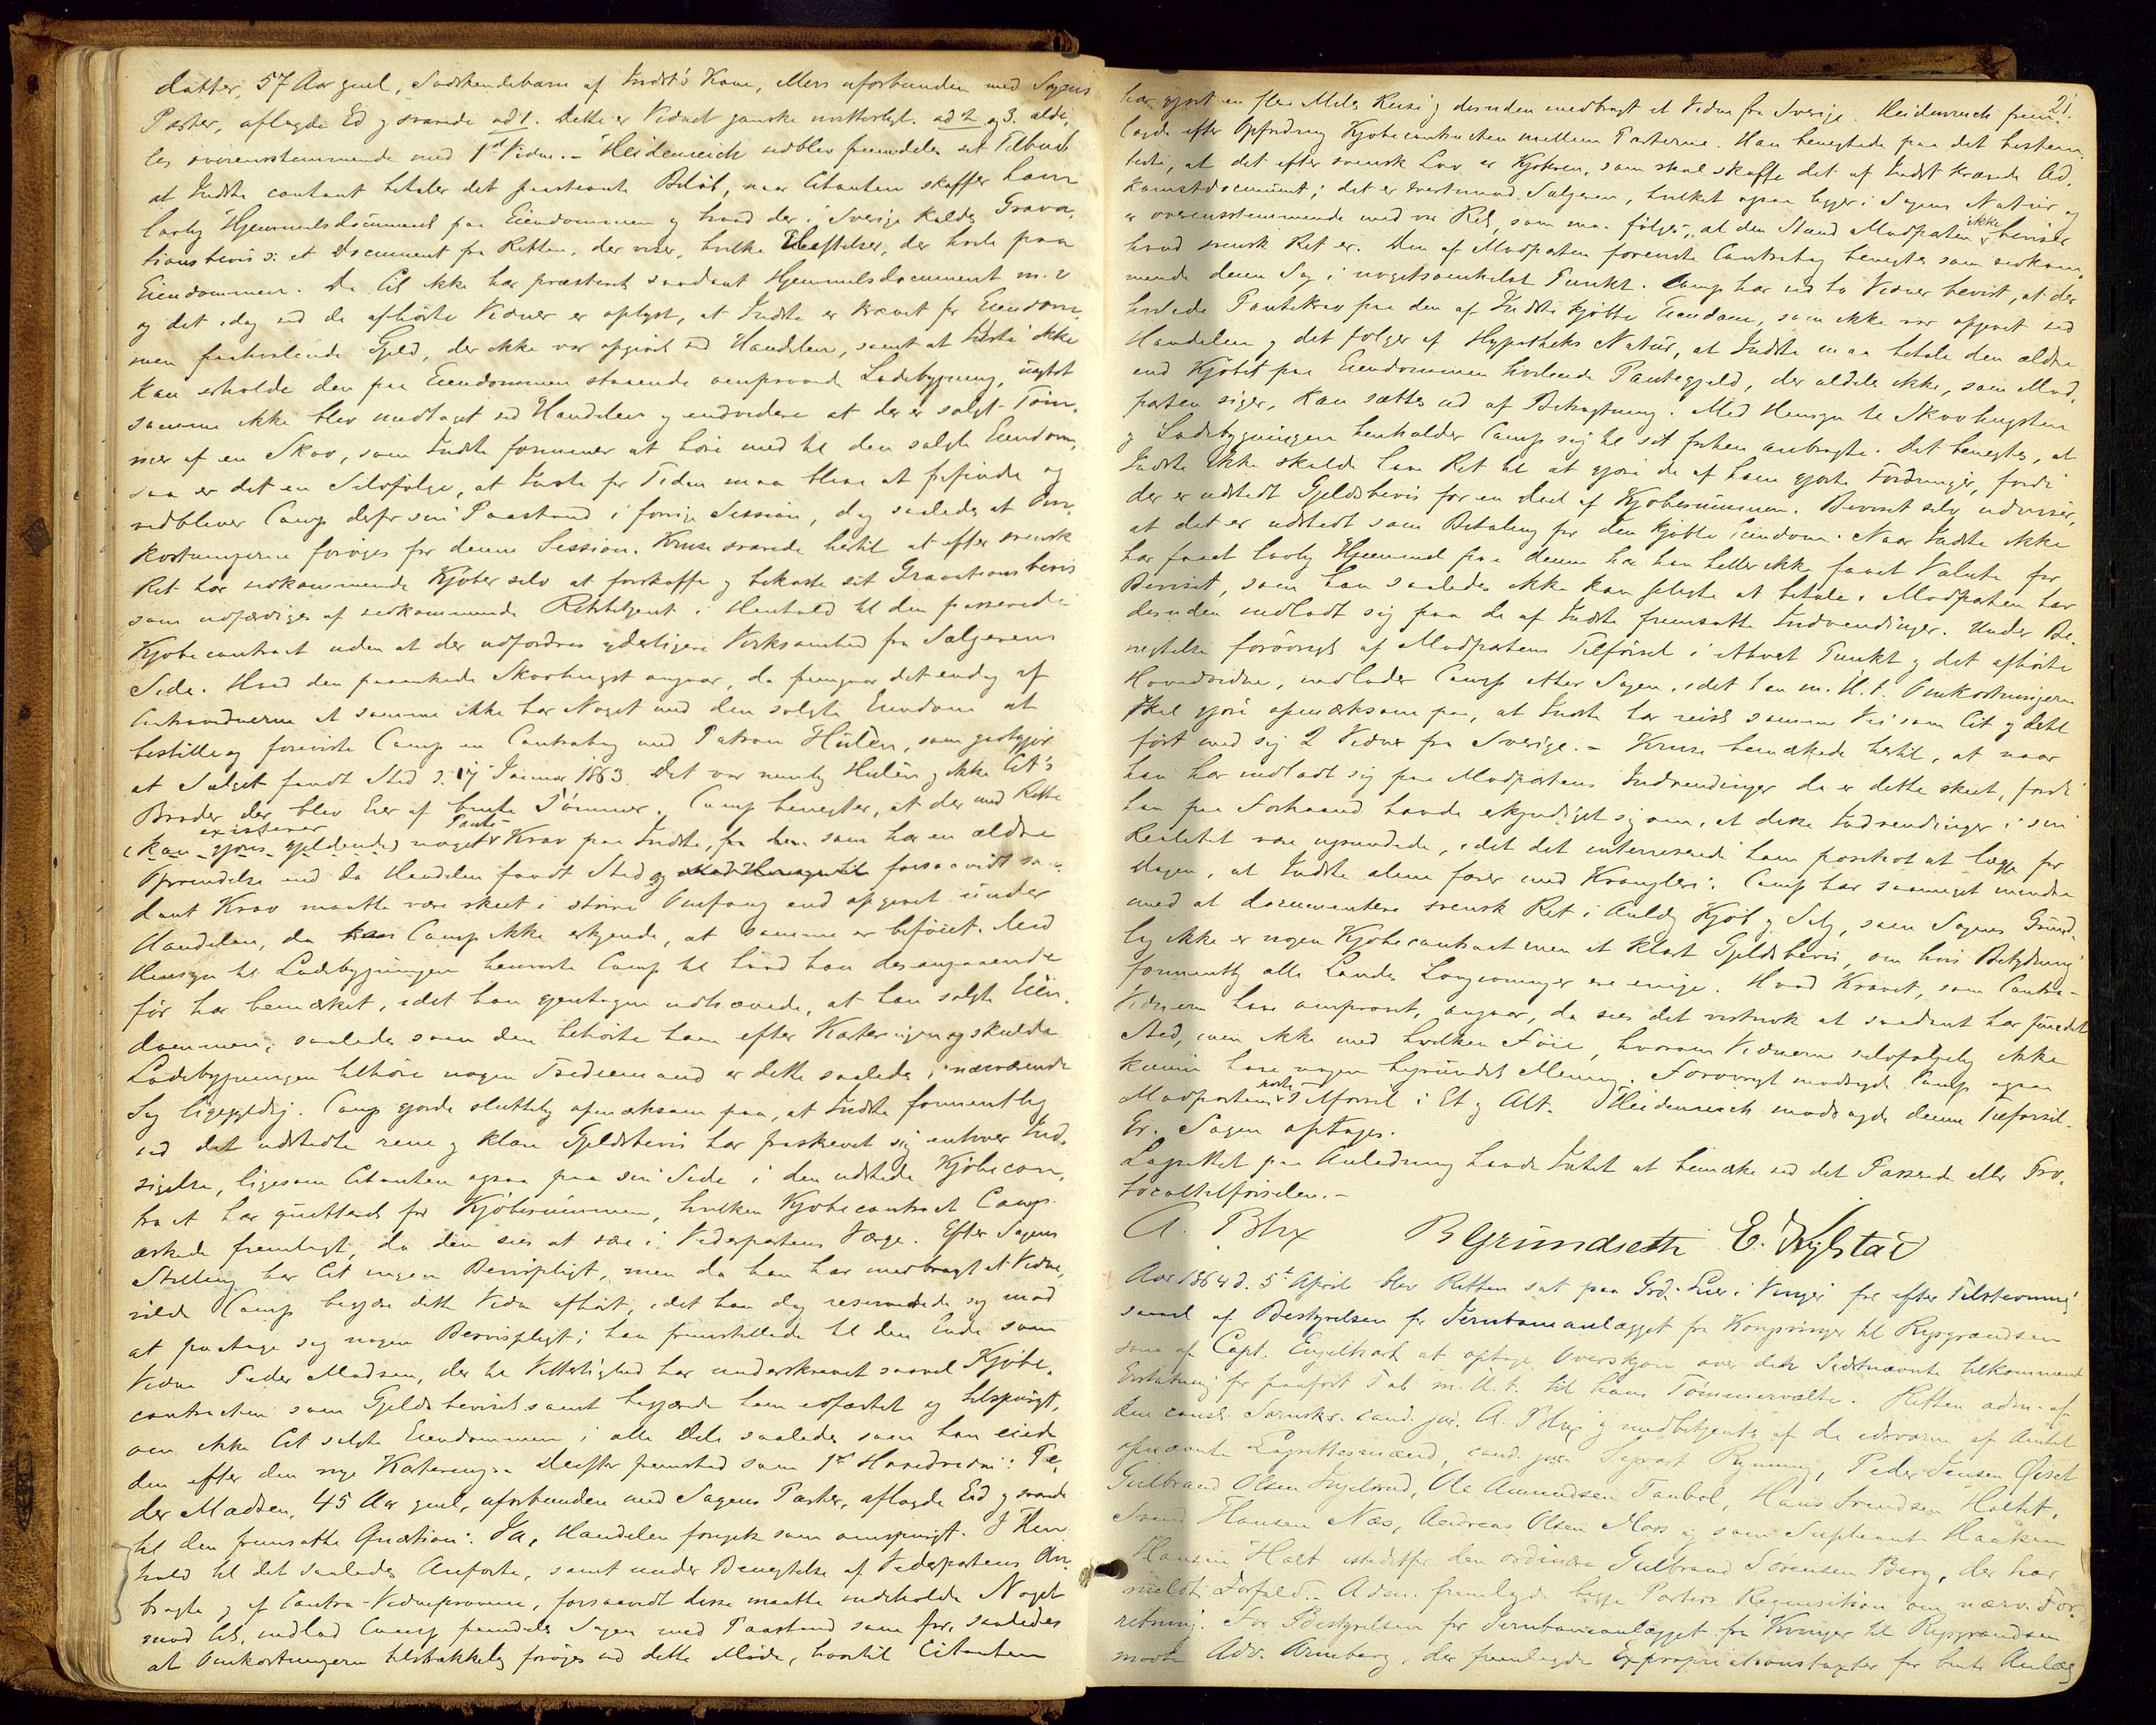 datter, 57 Aar gml, Sødskendebarn af Indst's Kone, ellers uforbunden med Sagens
Parter, aflagde Ed og svarede ad 1. Dette er Vidnet ganske vitterligt. ad 2 og 3. alde,
les overensstemmende med 1ste Vidne. - Heidenreich vedblev fremdeles sit Tilbud
at Indste contant betaler det paastevnte Beløb, naar Citanten skaffer ham
lovlig Hjemmelsdocument paa Eiendommen og hvad der i Sverige kaldes Grava-
tionsbevis ɔ: et Document fra Retten, der viser, hvilke Heftelser, der hvile paa
Eiendommen. Da Cit ikke har præsteret saadant Hjemmelsdocument m. v
og det idag ved de afhørte Vidner er oplyst, at Indste er krævet for Eiendom-
men paahvilende Gjeld, der ikke var opgivet ved Handelen, samt at Indste ikke
kan erholde den paa Eiendommen staaende omprovede Ladebygning, uagtet
samme ikke blev undtaget ved Handelen og endvidere at der er solgt Tøm-
mer af en Skov, som Indste formener at høre med til den solgte Eiendom,
saa er det en Selvfølge, at Indste for Tiden maa blive at frifinde og
vedbliver Comp derfor sin Paastand i forrige Session, dog saaledes at Om-
kostningerne forøges for denne Session. Kruse svarede hertil at efter svensk
Ret har vedkommende Kjøber selv at forskaffe og bekoste sit Gravationsbevis
som udfærdiges af vedkommende Rettstjent i Henhold til den passerede
Kjøbecontract uden at der udfordres yderligere Virksomhed fra Sælgerens
Side. Hvad den paaankede Skovhugst angaar, da fremgaar det endog af
Contravidnerne at samme ikke har Noget med den solgte Eiendom at
bestille og foreviste Comp en Contrabog med Patron Hülén, som godtgjør
at Salget fandt Sted d. 17 Januar 1863. Det var nemlig Hulén og ikke Cit's
Broder der blev Eier af bemte Tømmer. Comp benegter, at der med Rette
existerer Pante
(kan gjøres gjeldende) noget Krav paa Indste, fra den som har en ældre
Oprindelse end da Handelen fandt Sted og med Hensyn til forsaavidt saa-
dant Krav maatte være skeet i større Omfang end opgivet under
Handelen, da kan Comp ikke erkjende, at samme er beføiet. Med
Hensyn til Ladebygningen henviste Comp til hvad han desangaaende
før har bemærket, idet han gjentagen udhævede, at han solgte Eien,
dommen, saaledes som den tilhørte ham efter Kartering og skulde
Ladebygningen tilhøre nogen Trediemand er dette saaledes i nærværende
Sag ligegyldig. Comp gjorde sluttelig opmærksom paa, at Indste formentlig
ved det udstedte rene og klare Gjeldsbevis har fraskrevet sig enhver Ind,
sigelse, ligesom Citanten ogsaa paa sin Side i den udstedte Kjøbecon,
tract har qvitteret for Kjøbesummen, hvilken Kjøbecontract Comp
æskede fremlagt, da den sees at være i Vederpartens Værge. Efter Sagens
Stilling har Cit ingen Bevispligt, men da han har medbragt et Vidne,
vilde Comp begjære dette Vidne afhørt, idet han dog reserverede sig mod
at paatage sig nogen Bevispligt; han fremstillede til den Ende som
Vidne Peder Madsen, der til Vitterlighed har underskrevet saavel Kjøbe,
contracten som Gjeldsbeviset samt begjærede ham edfæstet og tilspurgt,
om ikke Cit solgte Eiendommen i alle Dele saaledes som han eiede
den efter den nye Kartering. Derefter fremstod som 1ste Hovedvidne: Pe,
der Madsen, 45 Aar gml, uforbunden med Sagens Parter, aflagde Ed og svarede
til den fremsatte Qvæstion: Ja, Handelen foregik som omspurgt. I Hen
hold til det saaledes Anførte, samt under Benegtelse af Vederpartens An-
bragte og af Contra-Vidneprovene, forsaavidt disse maatte indeholde Noget
mod Cit, indlod Comp fremdeles Sagen med Paastand som før, saaledes
at Omkostningerne tilstrækkelig forøges ved dette Møde, hvortil Citanten
21.
har gjort en flere Miles Reise og desuden medbragt et Vidne fra Sverige. Heidenreich frem-
lagde efter Opfordring Kjøbecontracten mellem Parterne. Han benegtede paa det bestem-
teste, at det efter svensk Lov er Kjøberen, som skal skaffe det af Indst krævede Ad,
komstdocument; det er tvertimod Sælgeren, hvilket ogsaa ligger i Sagens Natur og
er overensstemmende med vor Ret, som maa følges, al den Stund Modparten ikke beviser
hvad svensk Ret er. Den af Modparten foreviste Contrabog benegtes som vedkom,
mende denne Sag i nogetsomhelst Punkt. Comp har ved to Vidner bevist, at der
hvilede Pantekrav paa den af Indste kjøbte Eiendom, som ikke var opgivet ved
Handelen og det følger af Hypotheks Natur, at Indste maa betale den ældre
end Kjøbet paa Eiendommen hvilende Pantegjeld, der aldeles ikke, som Mod,
parten siger, kan sættes ud af Betragtning. Med Hensyn til Skovhugsten
og Ladebygningen henholder Comp sig til sit forhen anbragte. Det benegtes, at
Indste ikke skulde have Ret til at gjøre de af ham gjorte Fordringer, fordi
der er udstedt Gjeldsbevis for en Deel af Kjøbesummen. Beviset selv udviser,
at det er udstedt som Betaling for den kjøbte Eiendom. Naar Indste ikke
har faaet lovlig Hjemmel paa denne har han heller ikke faaet Valuta for
Beviset, som han saaledes ikke kan pligte at betale. Modparten har
desuden indladt sig paa de af Indste fremsatte Indvendinger. Under Be-
negtelse forøvrigt af Modpartens Tilførsel i ethvert Punkt og det afhørte
Hovedvidne, indlader Comp atter Sagen, idet han m. H. t. Omkostningerne
skal gjøre opmærksom paa, at Indste har reist samme Vei som Cit og dertil
ført med sig 2 Vidner fra Sverige. - Kruse bemærkede hertil, at naar
han har indladt sig paa Modpartens Indvendinger da er dette skeet, fordi
han paa Forhaand havde erkyndiget sig om, at disse Indvendinger i sin
Realitet vare ugrundede, idet det interesserede ham positivt at lægge for
Dagen, at Indste alene farer med Krangleri. Comp har saameget mindre
med at documentere svensk Ret i Anledn Kjøb og Salg, som Sagens Grund,
lag ikke er nogen Kjøbecontract men et klart Gjeldsbevis, om hvis Betydning
formentlig alle Landes Lovgivninger ere enige. Hvad Kravet, som Contra-
Vidnerne have omprovet, angaar, da sees det vistnok at saadant har fundet
Sted, men ikke med hvilken Føie, hvorom Vidnerne selvfølgelig ikke
kunne have nogen begrundet Mening. Forøvrigt modsagde Comp ogsaa
Modpartens sidste Tilførsel i Et og Alt. Heidenreich modsagde denne Tilførsel.
Er. Sagen optages.
Lagrettet paa Anledning havde Intet at bemærke ved det Passerede eller Pro,
tocoltilførselen. -
A. Blix B Grundseth E. Nystad
Aar 1864 d. 5te April blev Retten sat paa Grd. Lier i Vinger for efter Tilstevning
saavel af Bestyrelsen for Jernbaneanlægget fra Kongsvinger til Rigsgrændsen
som af Capt. Engelhart at optage Overskjøn over den Sidstnævnte tilkommende
Erstatning for paaført Tab m. H. t. til hans Tømmervælte. Retten adm. af
den const. Sorenskr. cand. jur. A. Blix og medbetjentes af de edsvorne af Amtet
opnævnte Lagrettesmænd, cand. jur. Sigvart Rynning, Peder Jensen Øiset
Gulbrand Olsen , Ole Amundsen Tanbøl, Hans Svendsen Holtet,
Svend Hansen Næs, Andreas Olsen Mors og som Supleant Haaken
Hansen Holt istedetfor den ordinære Gulbrand Sørensen Berg, der har
meldt Forfald. Adm. fremlagde begge Parters Requisition om nærv. For,
retning. For Bestyrelsen for Jernbaneanlægget fra Kvinger til Rigsgrændsen
mødte Adv. Arneberg, der fremlagde Expropriationstaxter for bemte Anlæg